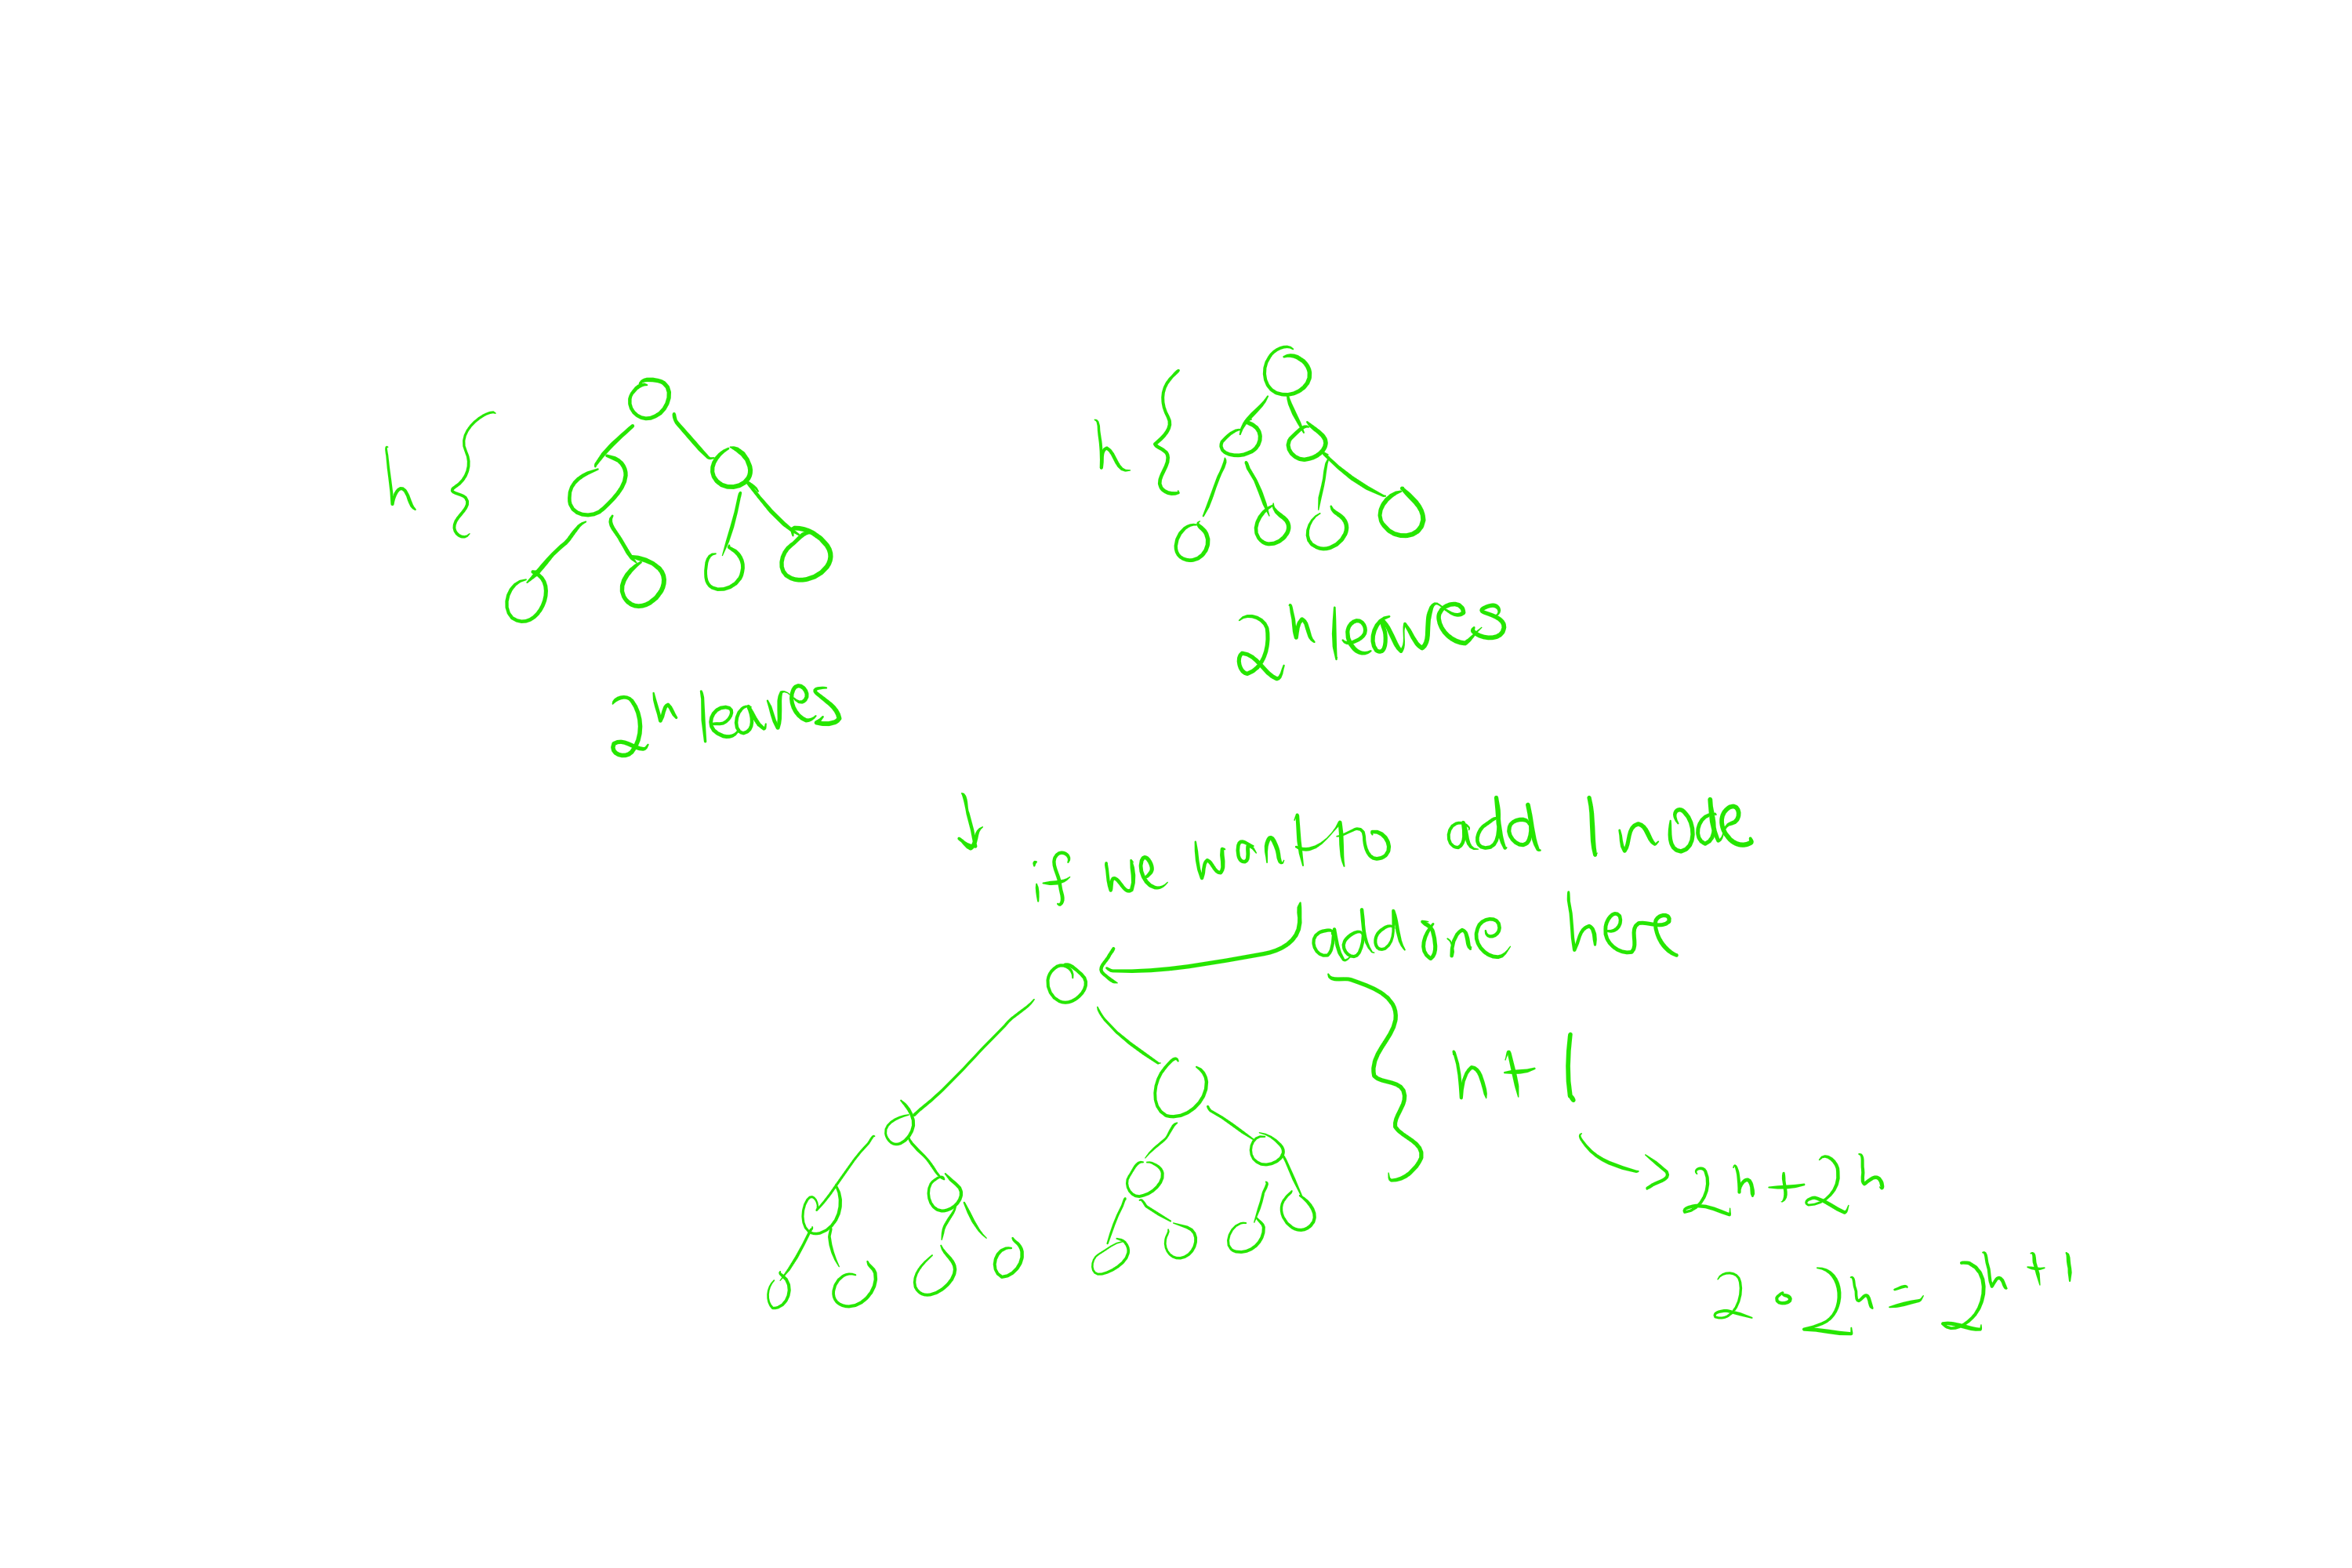 h
h
2^h leaves
2^h leaves
if we want to add 1 node
add one here
h + 1
2^h + 2^h
2 • 2^h = 2^{h+1}